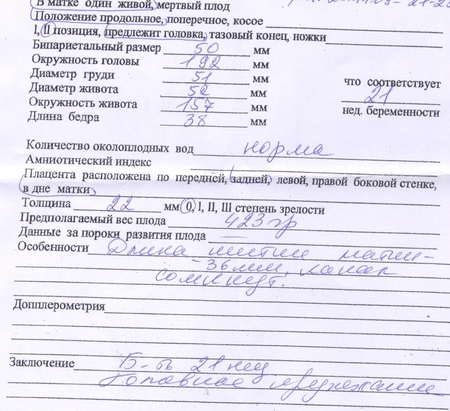 В матке один живой, мертвый плод
Положение продольное, поперечное, косое
I, II позиция, предлежит головка, тазовый конец, ножки
Бипариетальный размер 50 мм
Окружность головы 192 мм
Диаметр груди 51 мм что соответствует
Диаметр живота 52 мм 21
Окружность живота 157 мм нед. беременности
Длина бедра 38 мм
Количество околоплодных вод норма
Амниотический индекс
Плацента расположена по передней, задней, левой, правой боковой стенке,
в дне матки
Толщина 22 мм 0, I, II, III степень зрелости
Предполагаемый вес плода 423 гр
Данные за пороки развития плода
Особенности Длина шейки матки-
-36 мм, канал
сомкнут.
Допплерометрия
Заключение Б-ть 21 нед
Головное предлежание